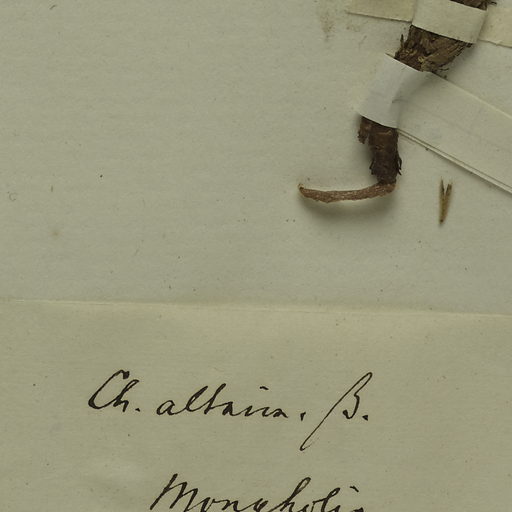 Ch. altaica. β.
Mongholia